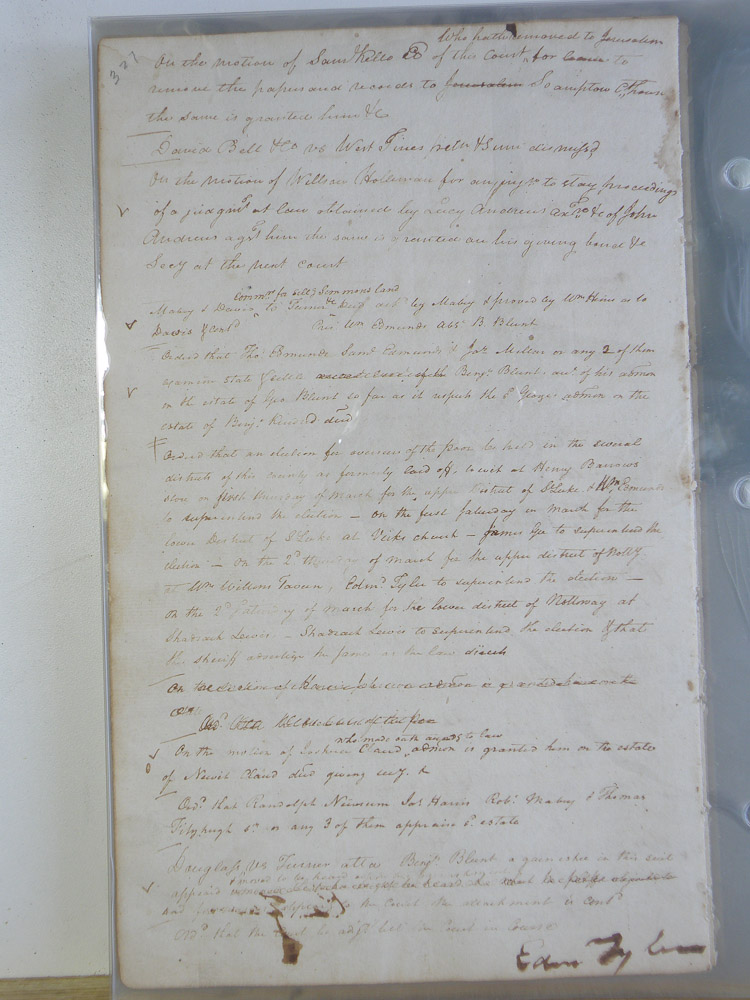 337
Who hath removed to Jerusalem
On the motion of Saml Kello Cl of this Court for leave to
remove the papers and records to Jerusalem So ampton Ct house
the same is granted him &c
David Bell & Co vs West Tines retn & Suit dismissd
On the motion of Willson Holleman for an injn to stay proceedings
of a judgmt at law obtained by Lucy Andrews exrx &c of John
Andrews agst him the same is granted on his giving bond &
Secy at the next court
Commrs for sell Simmons land
Mabry & Davis to deed ackd by Mabry & proved by Wm Hines as to
Davis & contd Prest Wm Edmunds abst B. Blunt
Ordered that Thos Edmunds Saml Edmunds & Jas Millar or any 2 of them
examine state & settle Benja Blunts acct of his admon
on the estate of Geo Blunt so far as it respects the sd Georges admon on the
estate of Benja decd
Ordered that an election for overseers of the poor be held in the several
districts of this county as formerly laid off, to wit at Henry Barrows
store on first thursday of March for the upper district of St Luke & Wm Edmunds
to superintend the election - on the first saturday in March for the
lower District of St Luke at Vicks church - James Gee to superintend the
election - on the 2d thursday of march for the upper district of Notty
at Wm Wilkins Tavern, Edmd Tyler to superintend the election -
on the 2d Saturday of March for the lower district of Nottoway at
Shadrach Lewis - Shadrach Lewis to superintend the election & that
the sheriff advertise the same as the law directs
On the motion of admon is granted on the
of the poor
who made oath accordg to law
On the motion of Jackson Claud admon is granted him on the estate
of Newit Claud decd giving secy. &
Ordd that Randolph Newsum Jas Harris Robt Mabry & Thomas
Fitzhugh sr or any 3 of them appraise sd estate
Douglass vs Turner atta Benja Blunt a garnishee in this suit
appeard
moved to be heard
and to the Court the attachment is contd
Ordd that the Court be adjd till the Court in Course
Edm Tyler